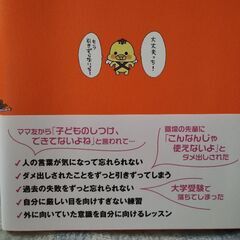 大丈夫っち!
もう
引きずらないで!
ママ友から「子どものしつけ、
できてないよね」と言われて…
職場の先輩に
「こんなんじゃ
使えないよ」と
ダメ出しされた
✓人の言葉が気になって忘れられない
✓ダメ出しされたことをずっと引きずってしまう
✓過去の失敗をずっと忘れられない
✓自分に厳しい目を向けすぎない練習
✓外に向いていた意識を自分に向けるレッスン
大学受験で
落ちてしまった